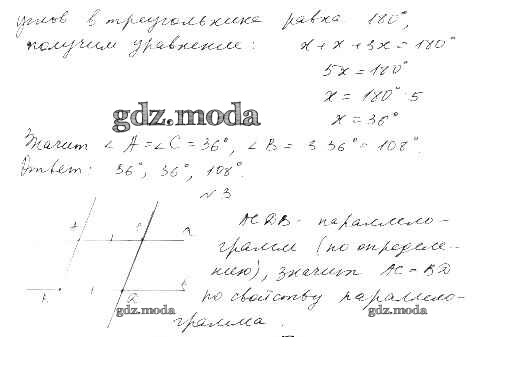 углов в треугольнике равна 180°,
получим уравнение: x+x+3x=180°
5x=180°
x=180° 5
gdz.moda
x=36°
Значит ∠A=∠C=36°, ∠B= 3 36°= 108°.
Ответ: 36°, 36°, 108°.
N 3
ACDB- параллело-
грамм (по определе-
нию), значит AC=BD
по свойству параллело-
gdz.moda gdz.moda
грамма.